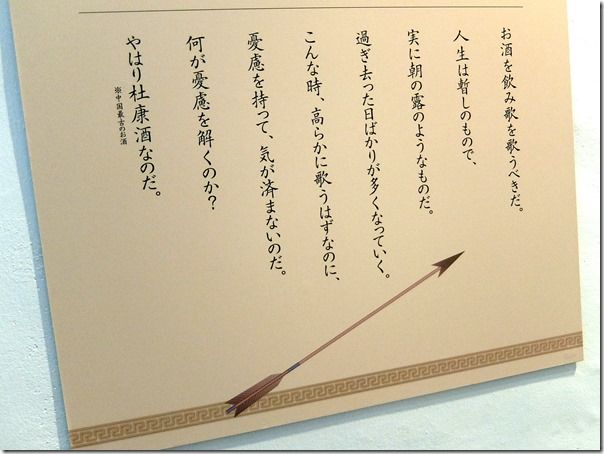 お酒を飲み歌を歌うべきだ。
人生は暫しのもので、
実に朝の露のようなものだ。
過ぎ去った日ばかりが多くなっていく。
こんな時、高らかに歌うはずなのに、
憂慮を持って、気が済まないのだ。
何が憂慮を解くのか？
やはり杜康酒なのだ。
※中国最古のお酒